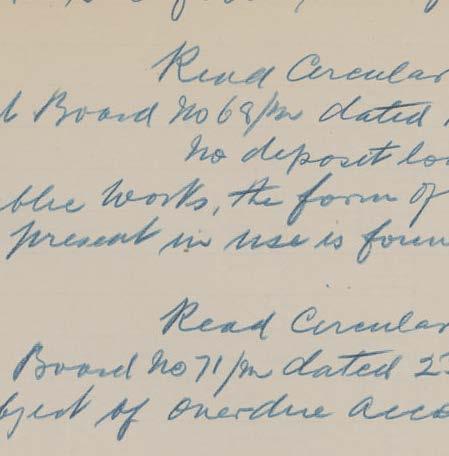 Read Circular
Board No 68/M dated
No deposit
Works, the form of
present in use is
Read Circular
Board No 71/M dated 2
of overdue acco